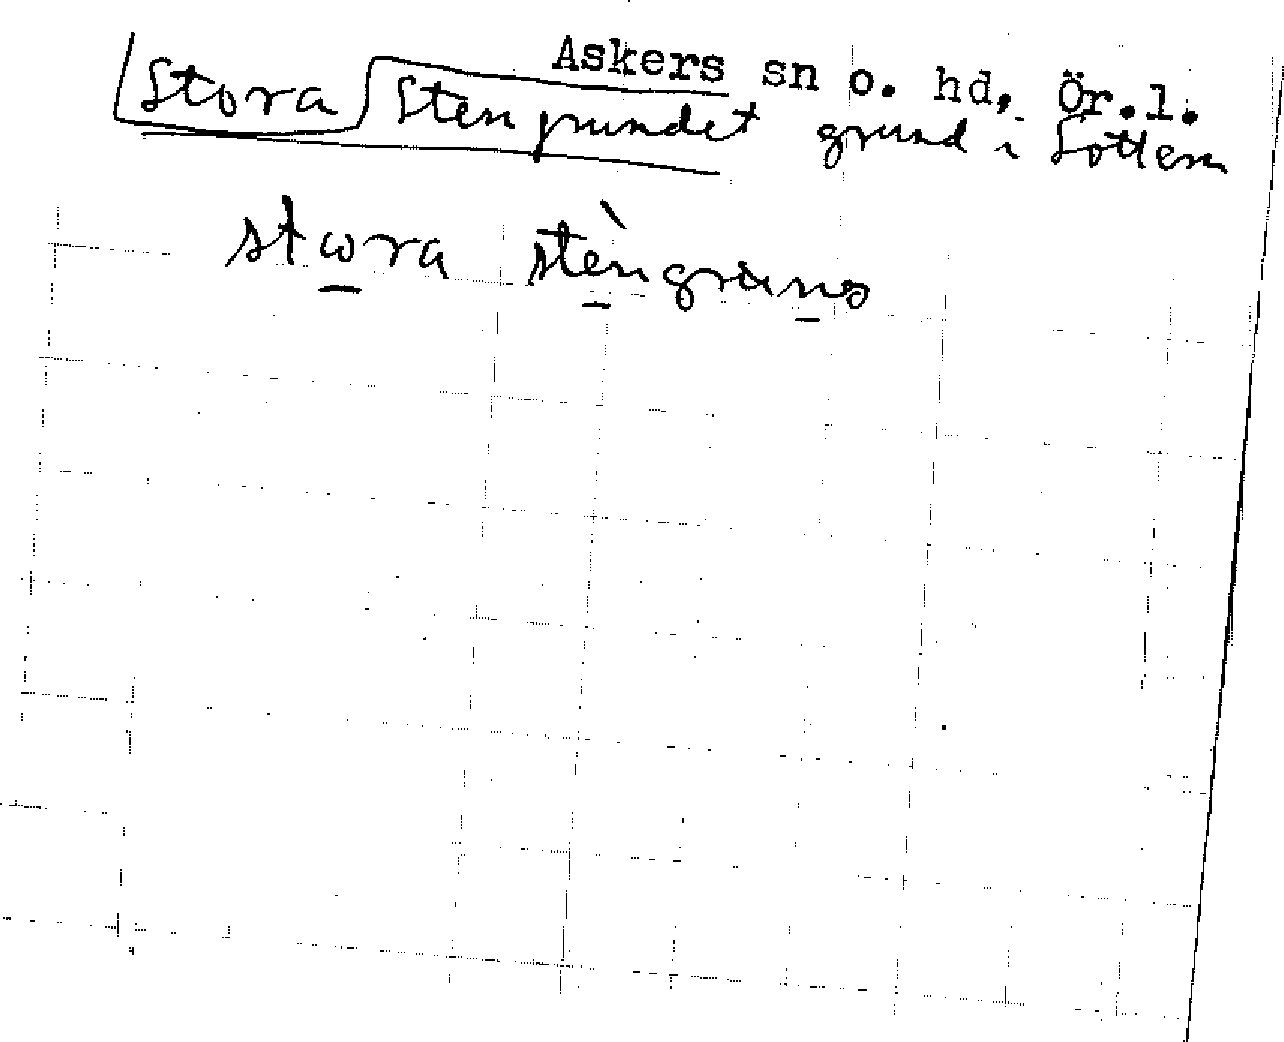 Askers sn o. hd, Ör.l.
Stora Stengrundet grund i Sottern
stora stèngruno